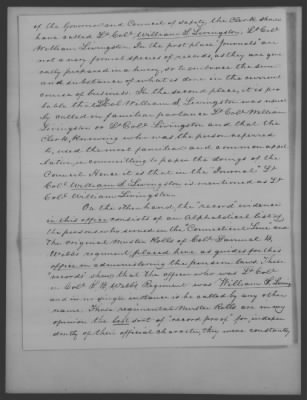 of the Governor and Council of safety, the Clerk should
have called Lt Colo. William S. Livingston, Lt Colo.
William Livingston. In the first place "Journals" are
not a very formal species of records, as they are gen-
erally prepared in a hurry, so to embrace the sum
and substance of what is done in the current
course of business. In the second place, it is pro-
bable that Lt Col William S. Livingston was usual-
ly called in familiar parlance Lt Colo. William
Livingston or Lt Colo. Livingston and that the
Clerk, knowing who was the person referred
to, used the most familiar and common appel-
lation, in committing to paper the doings of the
Council. Hence it is that in the Journals Lt
Colo. William S. Livingston is mentioned as Lt
Colo. William Livingston.
On the other hand, the "record evidence"
in this office consists of an Alphabetical list of
the persons who served in the "Connecticut Line" and
The original Muster Rolls of Colo. Samuel B.
Webb's regiment placed here as guides for this
office in administering the pension laws. These
"records" show that the officer who was Lt Colo.
in Colo. S. B. Webb's Regiment was William S. Living
and in no single instance is he called by any other
name. These regimental Muster Rolls are in my
opinion the best sort of "record proof" for, indepen-
dently of their official character, they were constantly